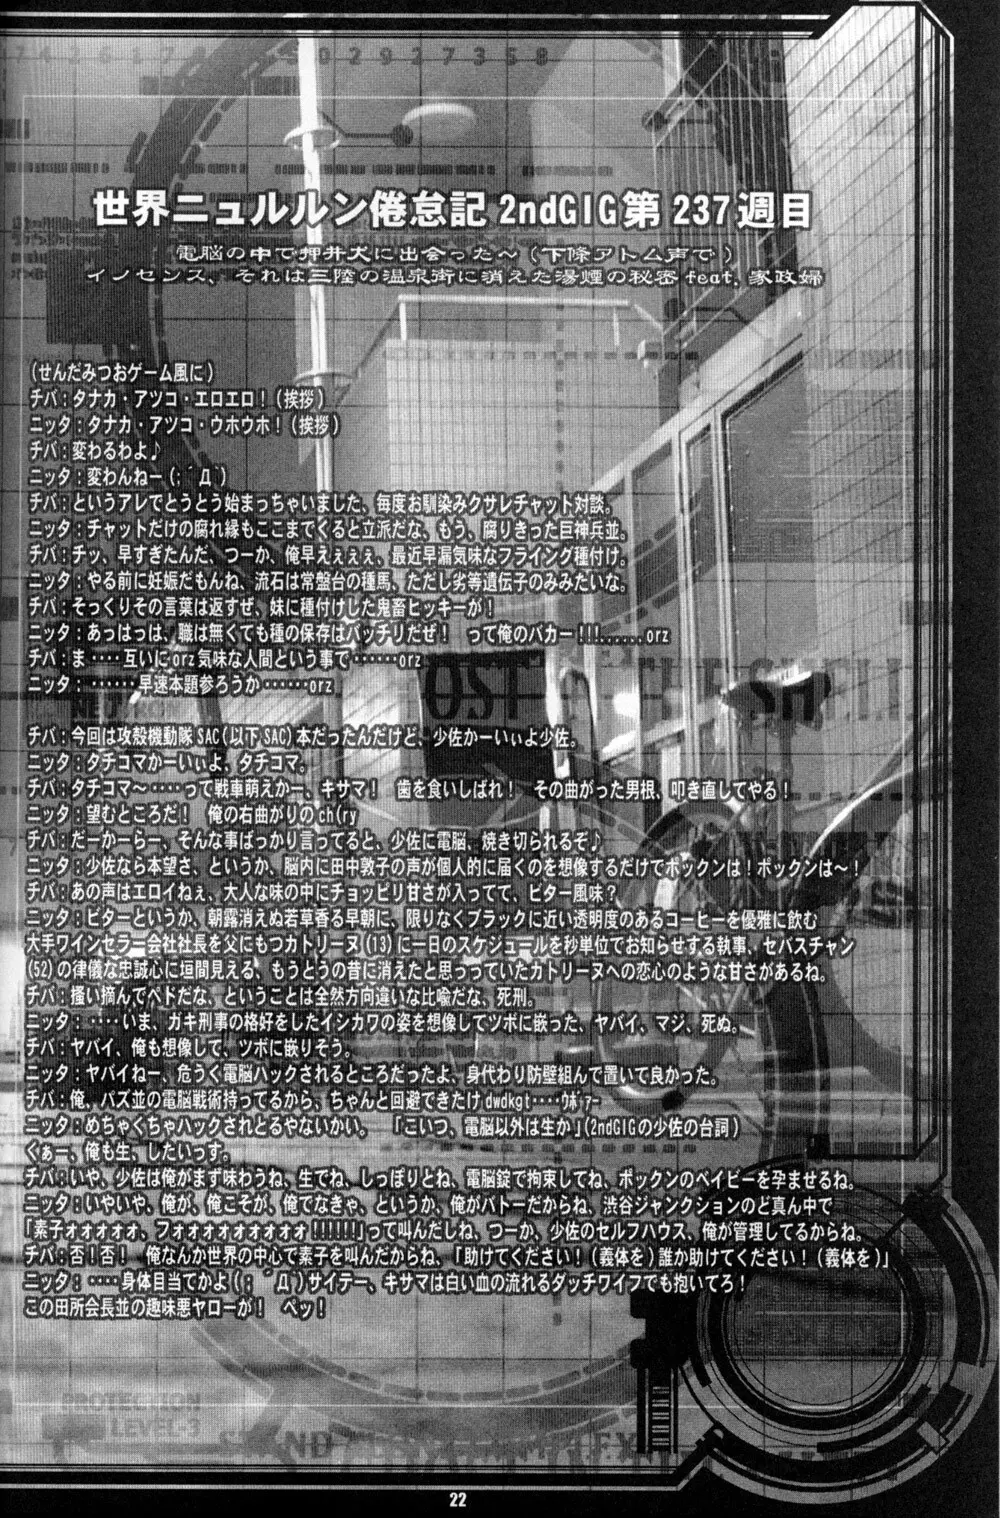 7 4 2 6 1 7 8
3 0 2 9 2 7 3 5 8
世界ニュルルン倦怠記 2ndGIG 第 237 週目
電脳の中で押井犬に出会った～（下條アトム声で）
イノセンス、それは三陸の温泉街に消えた湯煙の秘密 feat. 家政婦
（せんだみつおゲーム風に）
チバ：タナカ・アツコ・エロエロ！（挨拶）
ニッタ：タナカ・アツコ・ウホウホ！（挨拶）
チバ：変わるわよ♪
ニッタ：変わんねー（；´Д｀）
チバ：というアレでとうとう始まっちゃいました、毎度お馴染みクサレチャット対談。
ニッタ：チャットだけの腐れ縁もここまでくると立派だな、もう、腐りきった巨神兵並。
チバ：チッ、早すぎたんだ、つーか、俺早えぇぇぇ、最近早漏気味なフライング種付け。
ニッタ：やる前に妊娠だもんね、流石は常盤台の種馬、ただし劣等遺伝子のみみたいな。
チバ：そっくりその言葉は返すぜ、妹に種付けした鬼畜ヒッキーが！
ニッタ：あっはっは、職は無くても種の保存はバッチリだぜ！　って俺のバカー!!!......orz
チバ：ま‥‥互いにorz気味な人間という事で‥‥‥orz
ニッタ：‥‥‥早速本題参ろうか‥‥‥orz
チバ：今回は攻殻機動隊SAC（以下SAC）本だったんだけど、少佐かーいぃよ少佐。
ニッタ：タチコマかーいぃよ、タチコマ。
チバ：タチコマ～‥‥‥って戦車萌えかー、キサマ！　歯を食いしばれ！　その曲がった男根、叩き直してやる！
ニッタ：望むところだ！　俺の右曲がりのch(ry
チバ：だーかーらー、そんな事ばっかり言ってると、少佐に電脳、焼き切られるぞ♪
ニッタ：少佐なら本望さ、というか、脳内に田中敦子の声が個人的に届くのを想像するだけでボックンは！ボックンは～！
チバ：あの声はエロイねぇ、大人な味の中にチョッピリ甘さが入ってて、ビター風味？
ニッタ：ビターというか、朝露消えぬ若草香る早朝に、限りなくブラックに近い透明度のあるコーヒーを優雅に飲む
大手ワインセラー会社社長を父にもつカトリーヌ（13）に一日のスケジュールを秒単位でお知らせする執事、セバスチャン
（52）の律儀な忠誠心に垣間見える、もうとうの昔に消えたと思っっていたカトリーヌへの恋心のような甘さがあるね。
チバ：掻い摘んでペドだな、ということは全然方向違いな比喩だな、死刑。
ニッタ：‥‥‥いま、ガキ刑事の格好をしたイシカワの姿を想像してツボに嵌った、ヤバイ、マジ、死ぬ。
チバ：ヤバイ、俺も想像して、ツボに嵌りそう。
ニッタ：ヤバイねー、危うく電脳ハックされるところだったよ、身代わり防壁組んで置いて良かった。
チバ：俺、パズ並の電脳戦術持ってるから、ちゃんと回避できたけdwdkgt‥‥ｳﾎﾞｧｰ
ニッタ：めちゃくちゃハックされとるやないかい。　「こいつ、電脳以外は生か」（2ndGIGの少佐の台詞）
くぁー、俺も生、したいっす。
チバ：いや、少佐は俺がまず味わうね、生でね、しっぽりとね、電脳錠で拘束してね、ボックンのベイビーを孕ませるね。
ニッタ：いやいや、俺が、俺こそが、俺でなきゃ、というか、俺がバトーだからね、渋谷ジャンクションのど真ん中で
「素子ォォォォォ、フォォォォォォォォォ!!!!!!」って叫んだしね、つーか、少佐のセルフハウス、俺が管理してるからね。
チバ：否！否！　俺なんか世界の中心で素子を叫んだからね、「助けてください！（義体を）誰か助けてください！（義体を）」
ニッタ：‥‥‥身体目当てかよ（；´Д｀）サイテー、キサマは白い血の流れるダッチワイフでも抱いてろ！
この田所会長並の趣味悪ヤローが！　ペッ！
PROTECTION
LEVEL-3
22